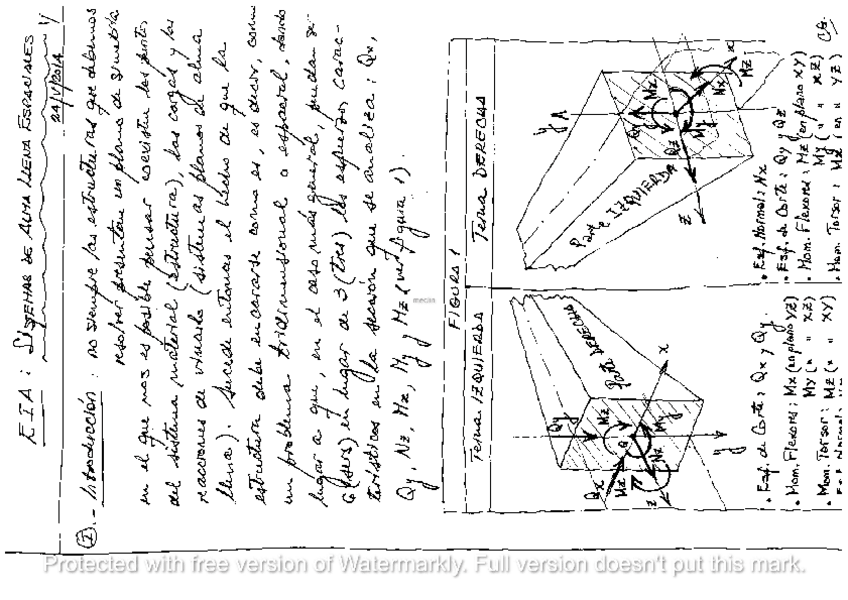 EIA: SISTEMAS DE ALMA LLENA ESPACIALES 1/
24/V/2014
I.- Introducción: no siempre las estructuras que debemos
resolver presentan un plano de simetría
en el que nos es posible pensar coexisten los entes
del sistema material (estructura), las cargas y las
reacciones de vínculo (sistemas planos de alma
llena). Sucede entonces el hecho de que la
estructura debe encararse como es, es decir, como
un problema tridimensional o espacial, dando
lugar a que, en el caso más general, puedan se-
6 (seis) en lugar de 3 (tres) los esfuerzos carac-
terísticos en la sección que se analiza: Qx,
Qy, Nz, Mx, My y Mz (ver figura 1).
FIGURA 1
Terna IZQUIERDA
Parte DERECHA
Qy
Qx
Mz
Mx
My
Nz
G
x
y
z
• Esf. de Corte: Qx y Qy.
• Mom. Flexores: Mx (en plano YZ)
My (" " XZ)
• Mom. Torsor: Mz (" " XY)
Terna DERECHA
Parte IZQUIERDA
y
Qy
Mx
Qz
My
Nx
Mz
x
z
• Esf. Normal: Nx
• Esf. de Corte: Qy y Qz
• Mom. Flexores: Mz (en plano XY)
My (" " XZ)
• Mom. Torsor: Mx (en " YZ)
mecias
Protected with free version of Watermarkly. Full version doesn't put this mark.